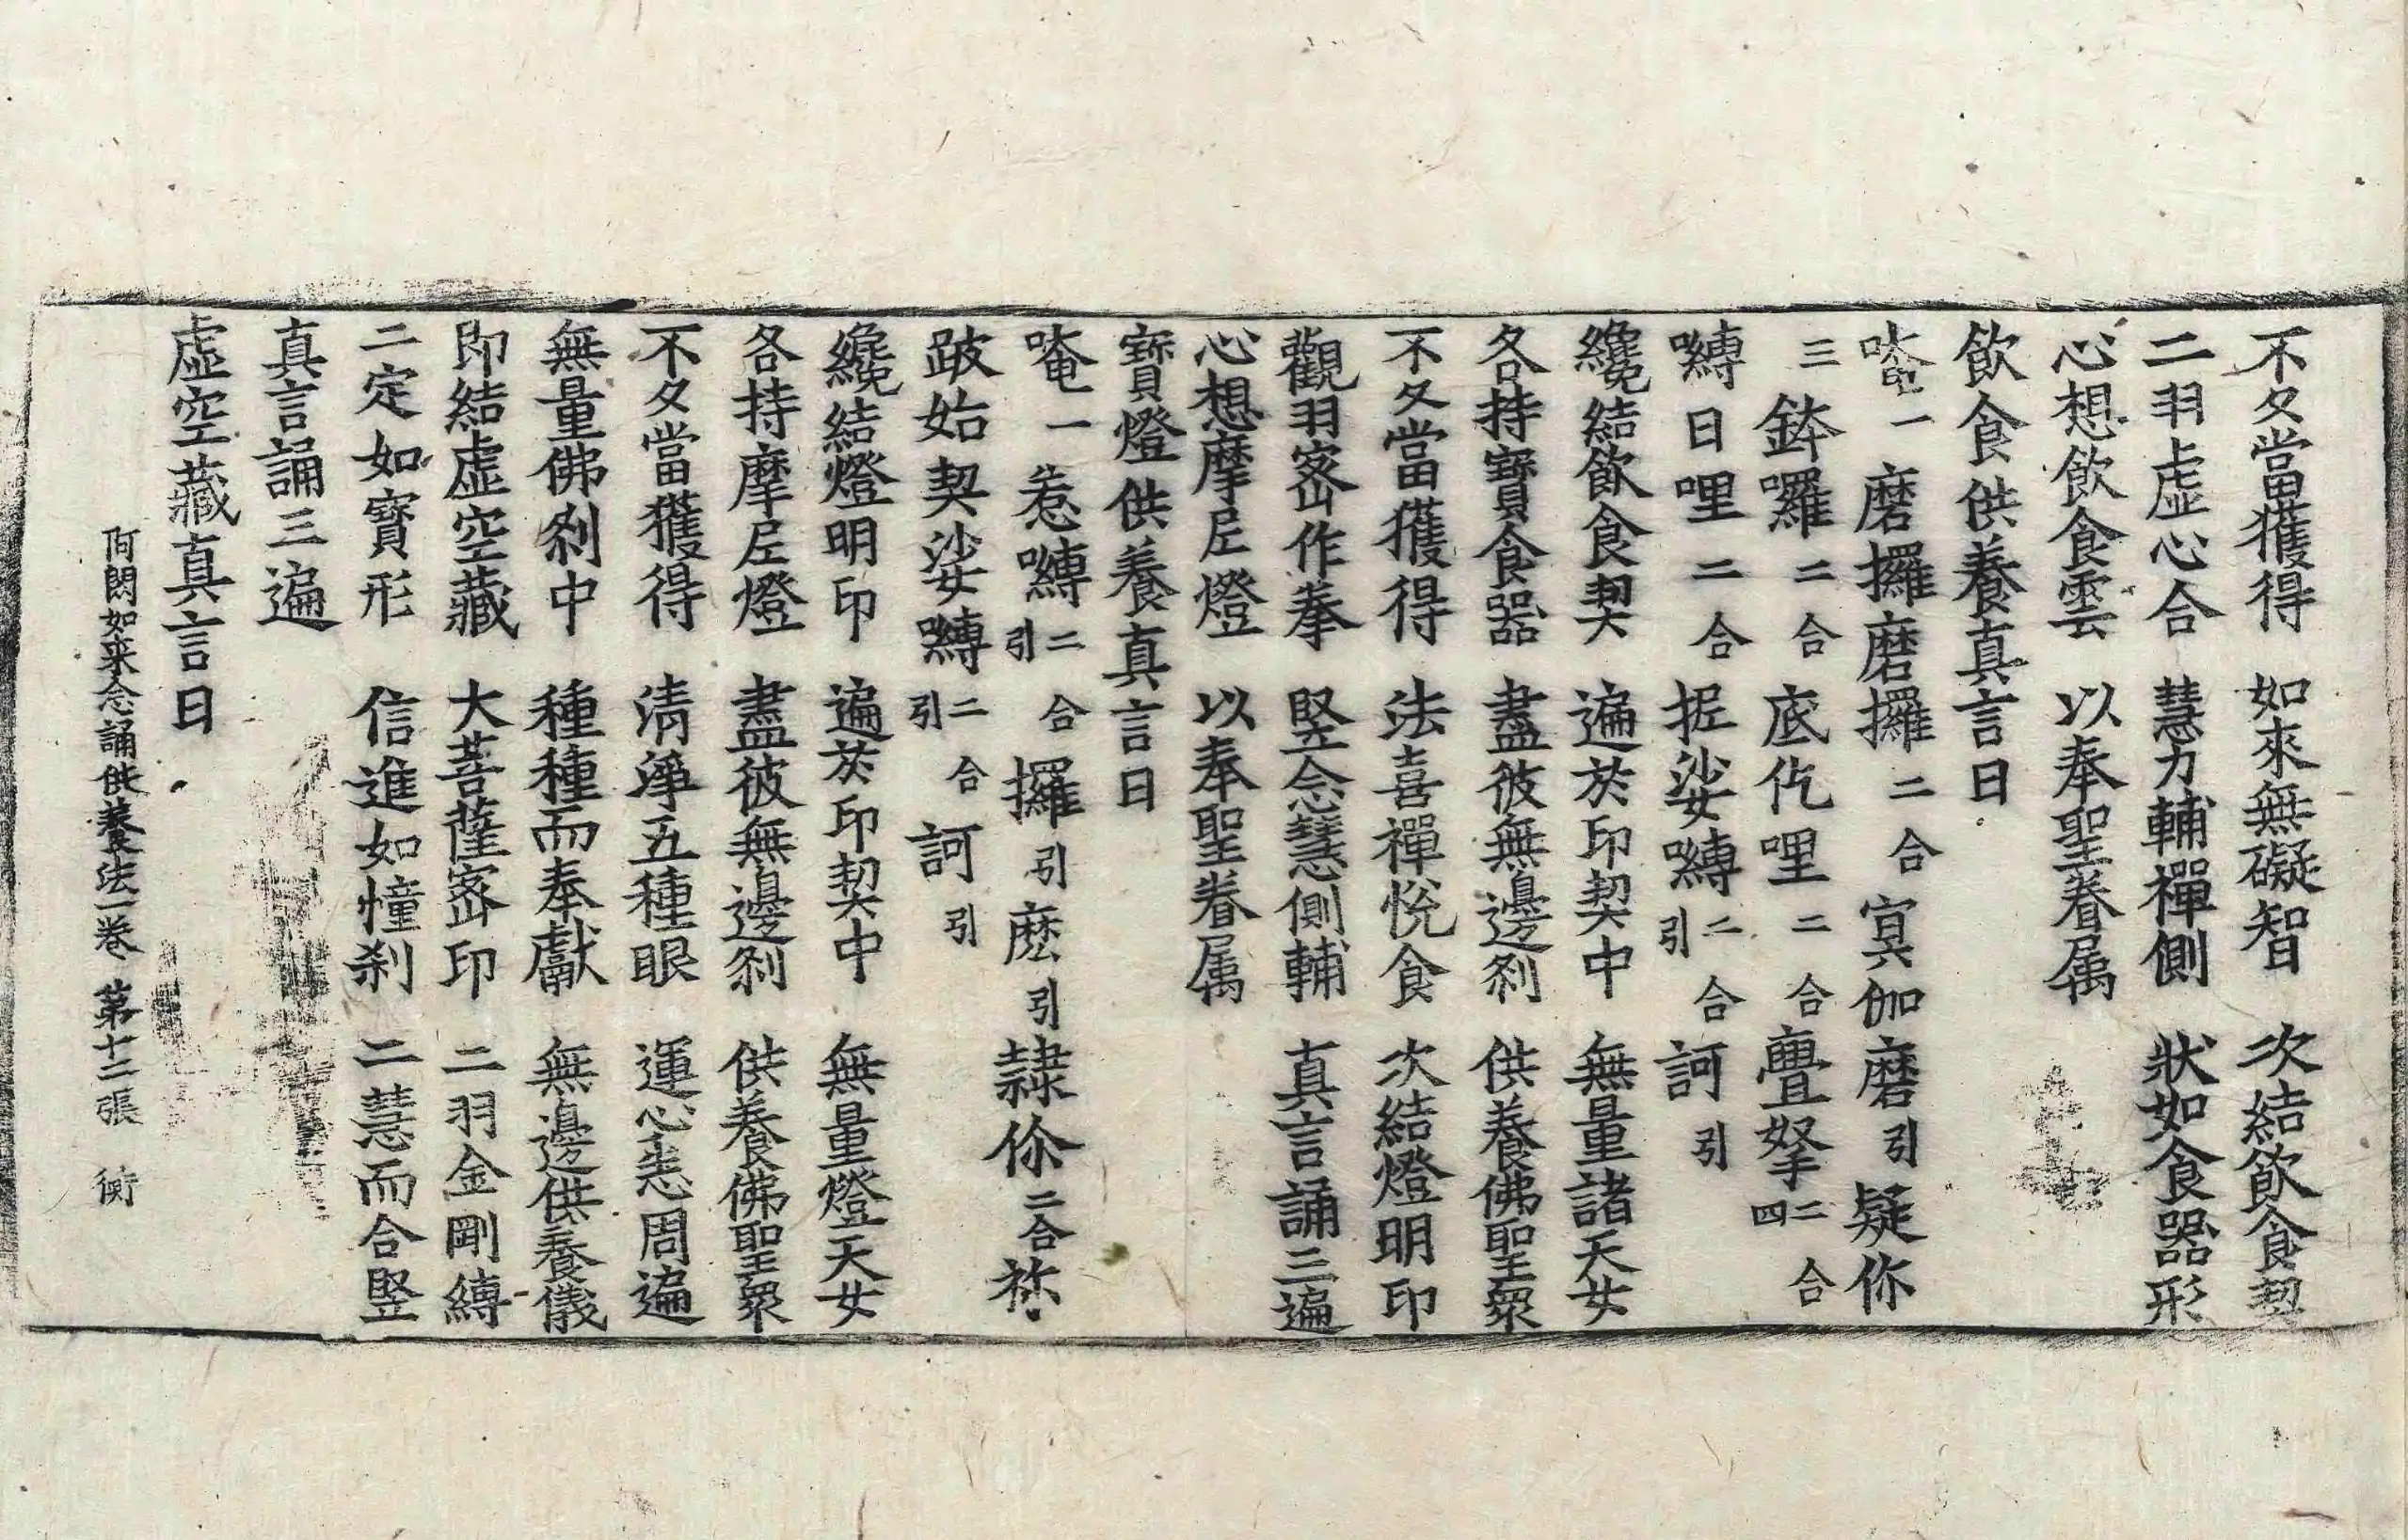 不久當獲得　如來無礙智　次結飲食契
二羽虛心合　慧力輔禪側　狀如食器形
心想飲食雲　以奉聖眷属
飲食供養真言曰
唵一磨攞磨攞二合寘伽磨引疑你
三鉢囉二合底仡哩二合疊拏二合四
嚩日哩二合抳娑嚩二合引訶引
纔結飲食契　遍於印契中　無量諸天女
各持寶食器　盡彼無邊刹　供養佛聖衆
不久當獲得　法喜禪悅食　次結燈明印
觀羽密作拳　竪念慧側輔　真言誦三遍
心想摩尼燈　以奉聖眷属
寶燈供養真言曰
唵一惹嚩二合引攞引麽引隸你二合祢
跛始契娑嚩二合引訶引
纔結燈明印　遍於印契中　無量燈天女
各持摩尼燈　盡彼無邊刹　供養佛聖衆
不久當獲得　清淨五種眼　運心悉周遍
無量佛刹中　種種而奉獻　無邊供養儀
即結虛空藏　大菩薩密印　二羽金剛縛
二定如寶形　信進如憧刹　二慧而合竪
真言誦三遍
虛空藏真言曰
阿閦如来念誦供養法一卷　第十二張　衡